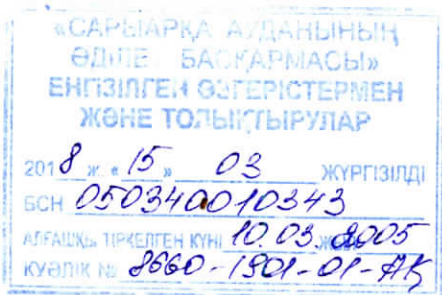 «САРЫАРҚА АУДАНЫНЫҢ
ӘДІЛЕТ БАСҚАРМАСЫ»
ЕНГІЗІЛГЕН ӨЗГЕРІСТЕРМЕН
ЖӘНЕ ТОЛЫҚТЫРУЛАР
2018 ж. «15» 03 ЖҮРГІЗІЛДІ
БСН 050340010343
АЛҒАШҚЫ ТІРКЕЛГЕН КҮНІ 10.03. 2005
КУӘЛІК № 8660-1901-01-АҚ